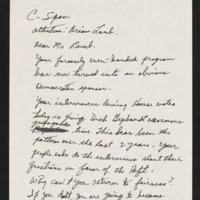 C-Span
Attention: Brian Lamb
Dear Mr Lamb.
Your formerly even-handed program
has now turned into an obvious
Democratic sponsor.
Your interviewer during House votes
is giving Dick Gephardt
time. This has been the
pattern over the last 2 years. Your
people take do the interviews slant their
questions in favor of the left.
Why can't you return to fairness?
If you don't you are going to become